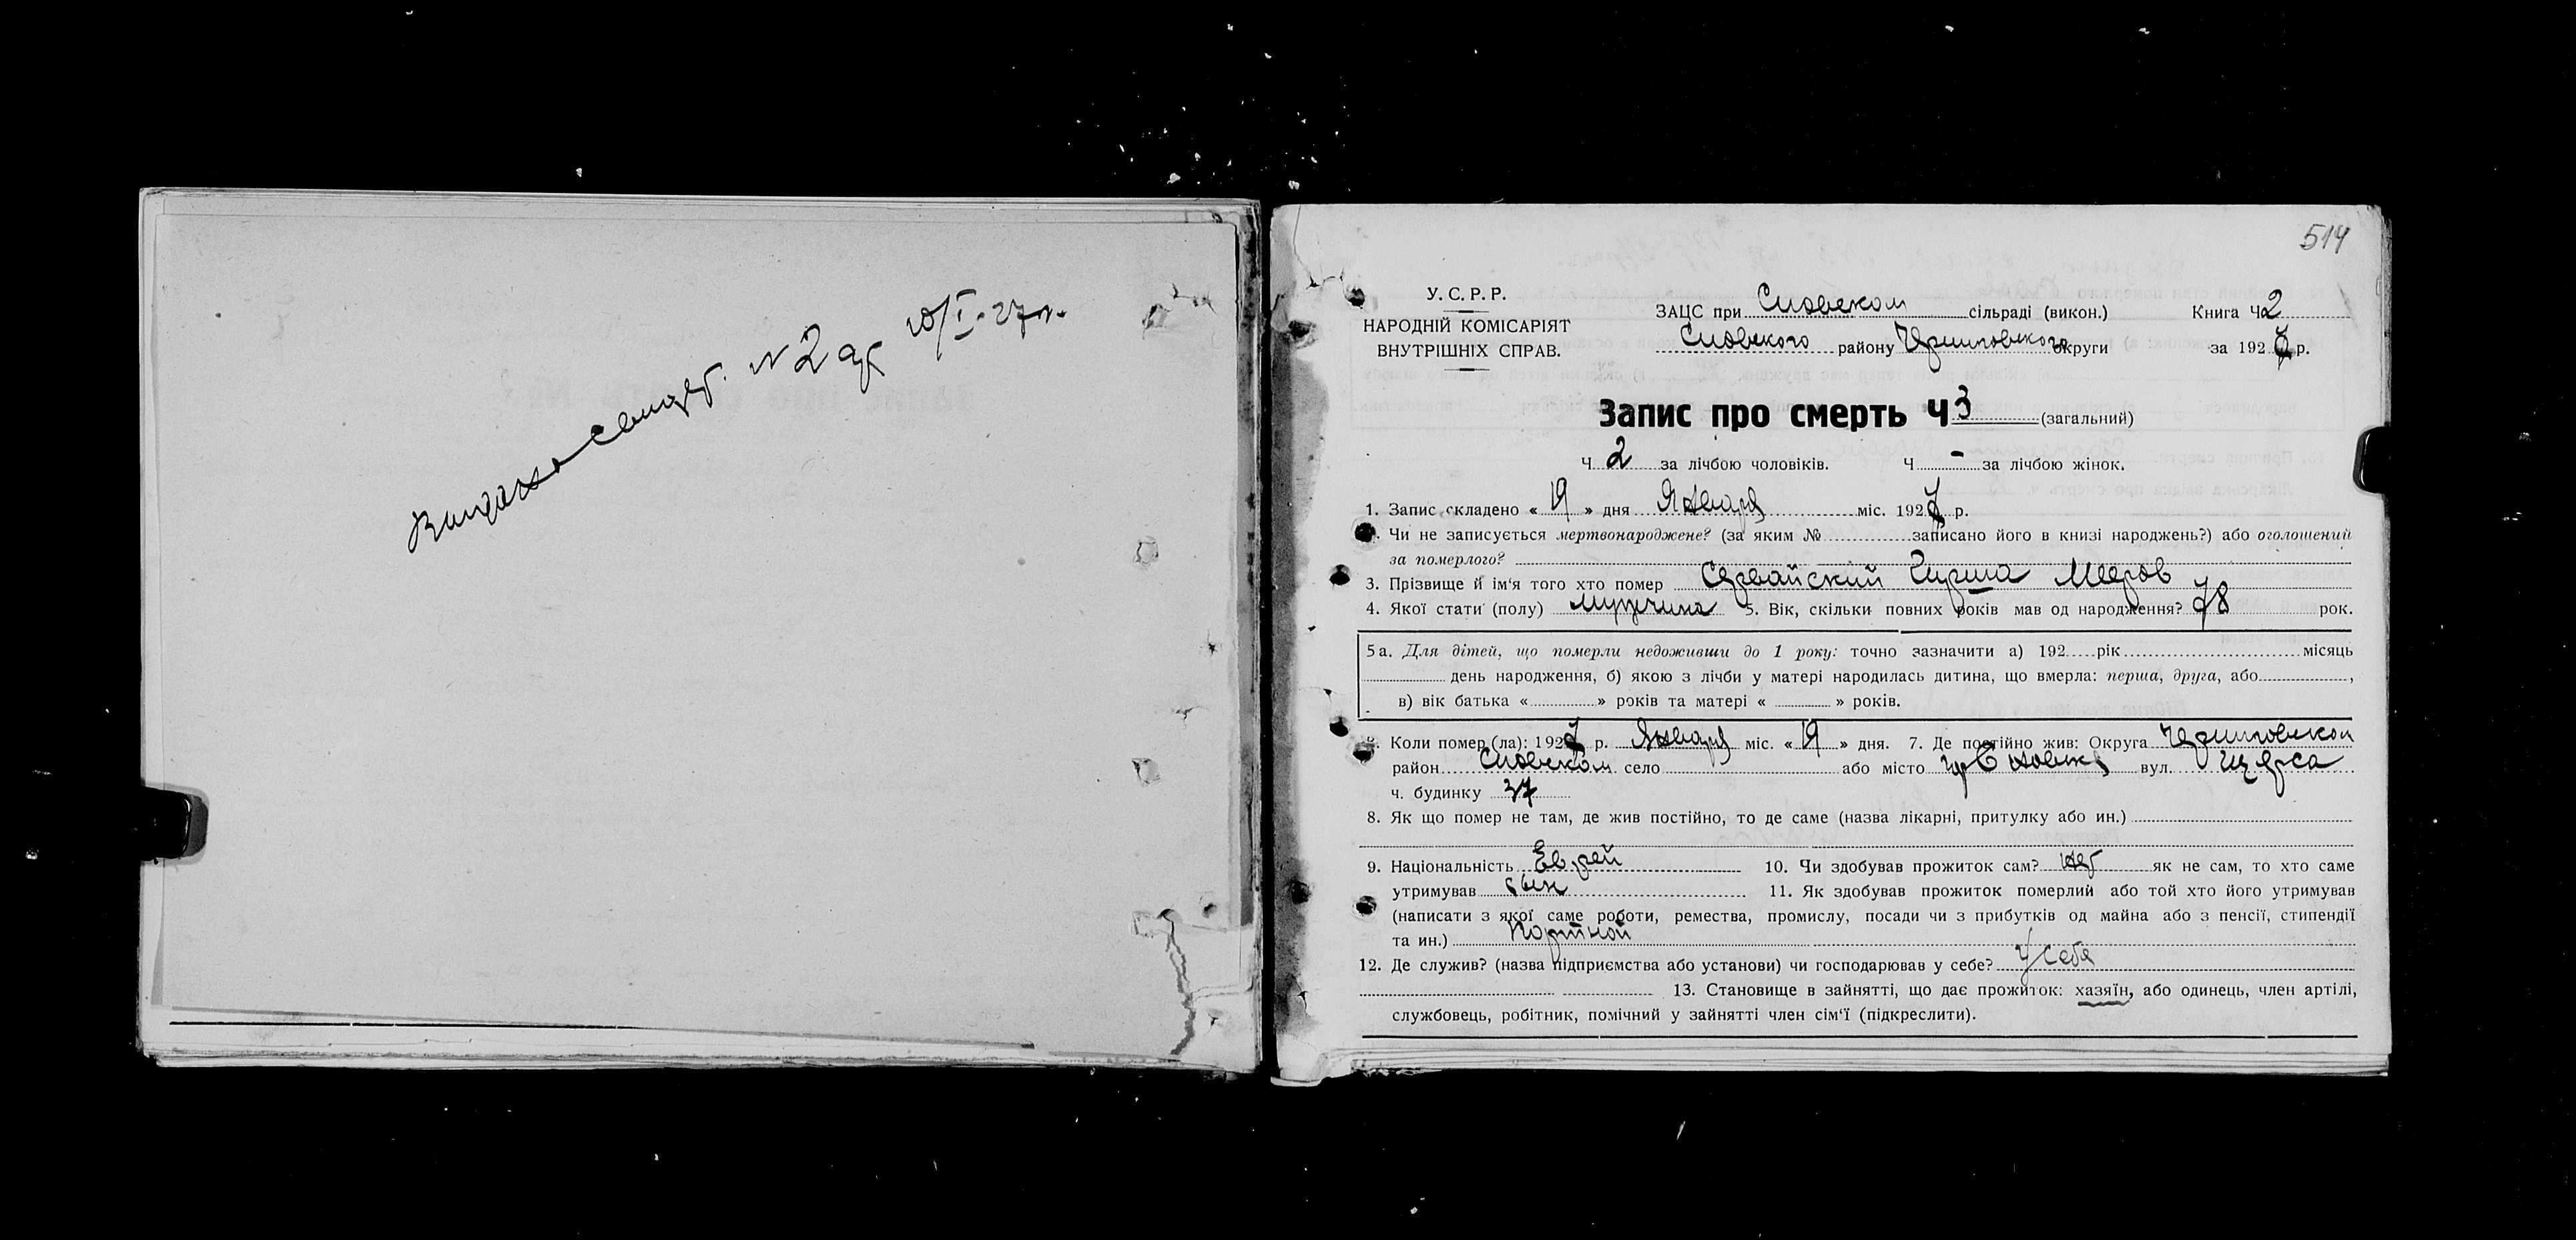 Выдано свидет. N 2 от 20/I-27 г.
514
У.С.Р.Р.
НАРОДНІЙ КОМІСАРІЯТ
ВНУТРІШНІХ СПРАВ.
ЗАЦС при Сновском сільраді (викон.) Книга Ч 2
Сновского району Черниговского округи за 1927 р.
Запис про смерть Ч 3 (загальний)
Ч. 2 за лічбою чоловіків. Ч. - за лічбою жінок.
1. Запис складено « 19 » дня Января міс. 1927 р.
Чи не записується мертвонароджене? (за яким № записано його в книзі народжень?) або оголошений
за померлого?
3. Прізвище й ім'я того хто помер Гирша Мееров
4. Якої стати (полу) мужчина 5. Вік, скільки повних років мав од народження? 78 рок.
5а. Для дітей, що померли недоживши до 1 року: точно зазначити а) 192 рік місяць
день народження, б) якою з лічби у матері народилась дитина, що вмерла: перша, друга, або ,
в) вік батька « » років та матері « » років.
Коли помер (ла): 1927 р. Января міс. « 19 » дня. 7. Де постійно жив: Округа Черниговской
район Сновском село або місто гор Сновск вул. Щорса
ч. будинку 37
8. Як що помер не там, де жив постійно, то де саме (назва лікарні, притулку або ин.)
9. Національність Еврей 10. Чи здобував прожиток сам? нет як не сам, то хто саме
утримував сын 11. Як здобував прожиток померлий або той хто його утримував
(написати з якої саме роботи, ремества, промислу, посади чи з прибутків од майна або з пенсії, стипендії
та ин.) Портной
12. Де служив? (назва підприємства або установи) чи господарював у себе? у себя
13. Становище в зайнятті, що дає прожиток: хазяїн, або одинець, член артілі,
службовець, робітник, помічний у зайнятті член сім'ї (підкреслити).